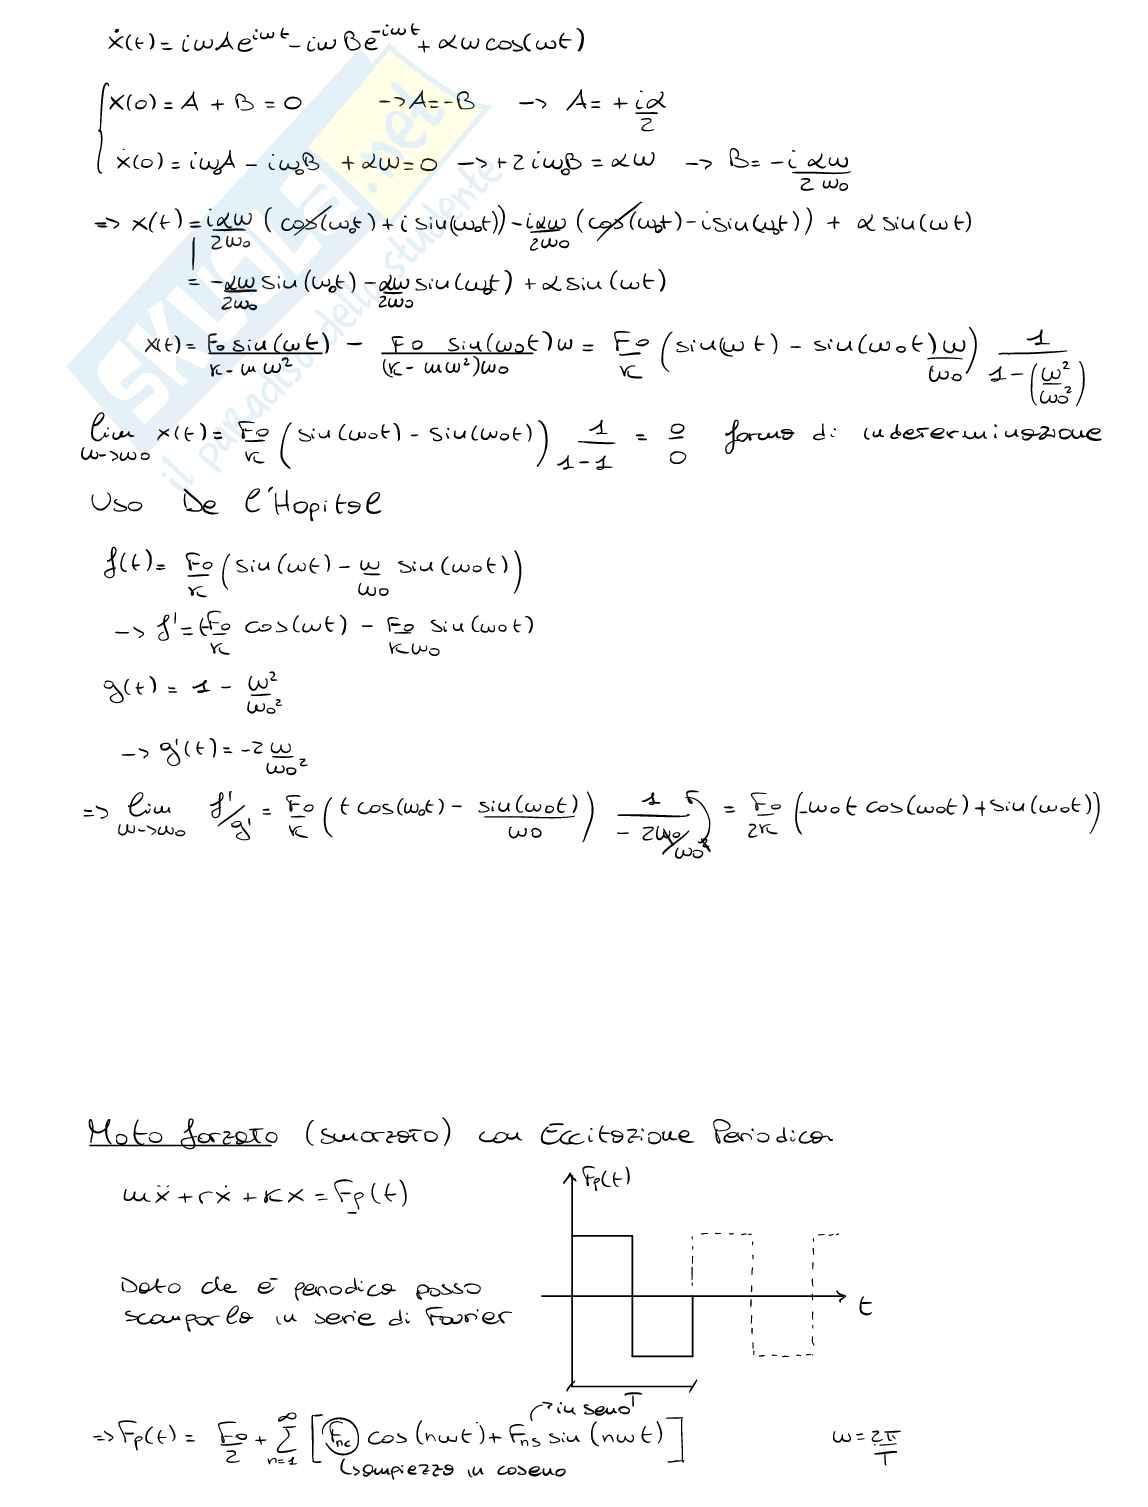 ẋ(t) = iωAe^{iωt} - iωBe^{-iωt} + αωcos(ωt)
x(0) = A + B = 0 -> A = -B -> A = + iα/2
ẋ(0) = iω₀A - iω₀B + αω = 0 -> +2iω₀B = αω -> B = -i αω/2ω₀
=> x(t) = iαω/2ω₀ (cos(ω₀t) + i sin(ω₀t)) - iαω/2ω₀ (cos(ω₀t) - i sin(ω₀t)) + α sin(ωt)
= -αω/2ω₀ sin(ω₀t) - αω/2ω₀ sin(ω₀t) + α sin(ωt)
x(t) = F₀ sin(ωt)/(k - mω²) - F₀ sin(ω₀t)ω/((k - mω²)ω₀) = F₀/k (sin(ωt) - sin(ω₀t) ω/ω₀) 1/(1 - (ω²/ω₀²))
lim ω->ω₀ x(t) = F₀/k (sin(ω₀t) - sin(ω₀t)) 1/(1-1) = 0/0 forma di indeterminazione
Uso De l'Hopital
f(t) = F₀/k (sin(ωt) - ω/ω₀ sin(ω₀t))
-> f' = tF₀/k cos(ωt) - F₀/kω₀ sin(ω₀t)
g(t) = 1 - ω²/ω₀²
-> g'(t) = -2ω/ω₀²
=> lim ω->ω₀ f'/g' = F₀/k (t cos(ω₀t) - sin(ω₀t)/ω₀) 1/(-2ω₀/ω₀²) = F₀/2k (-ω₀t cos(ω₀t) + sin(ω₀t))
Moto forzato (smorzato) con Eccitazione Periodica
mẍ + rẋ + kx = Fp(t)
Fp(t)
Dato che è periodica posso
scomporla in serie di Fourier
t
T
-> in seno
=> Fp(t) = F₀/2 + Σ_{n=1}^{∞} [Fnc cos(nωt) + Fns sin(nωt)] ω = 2π/T
ampiezza in coseno
SKUOLA.net
il paradiso dello studente